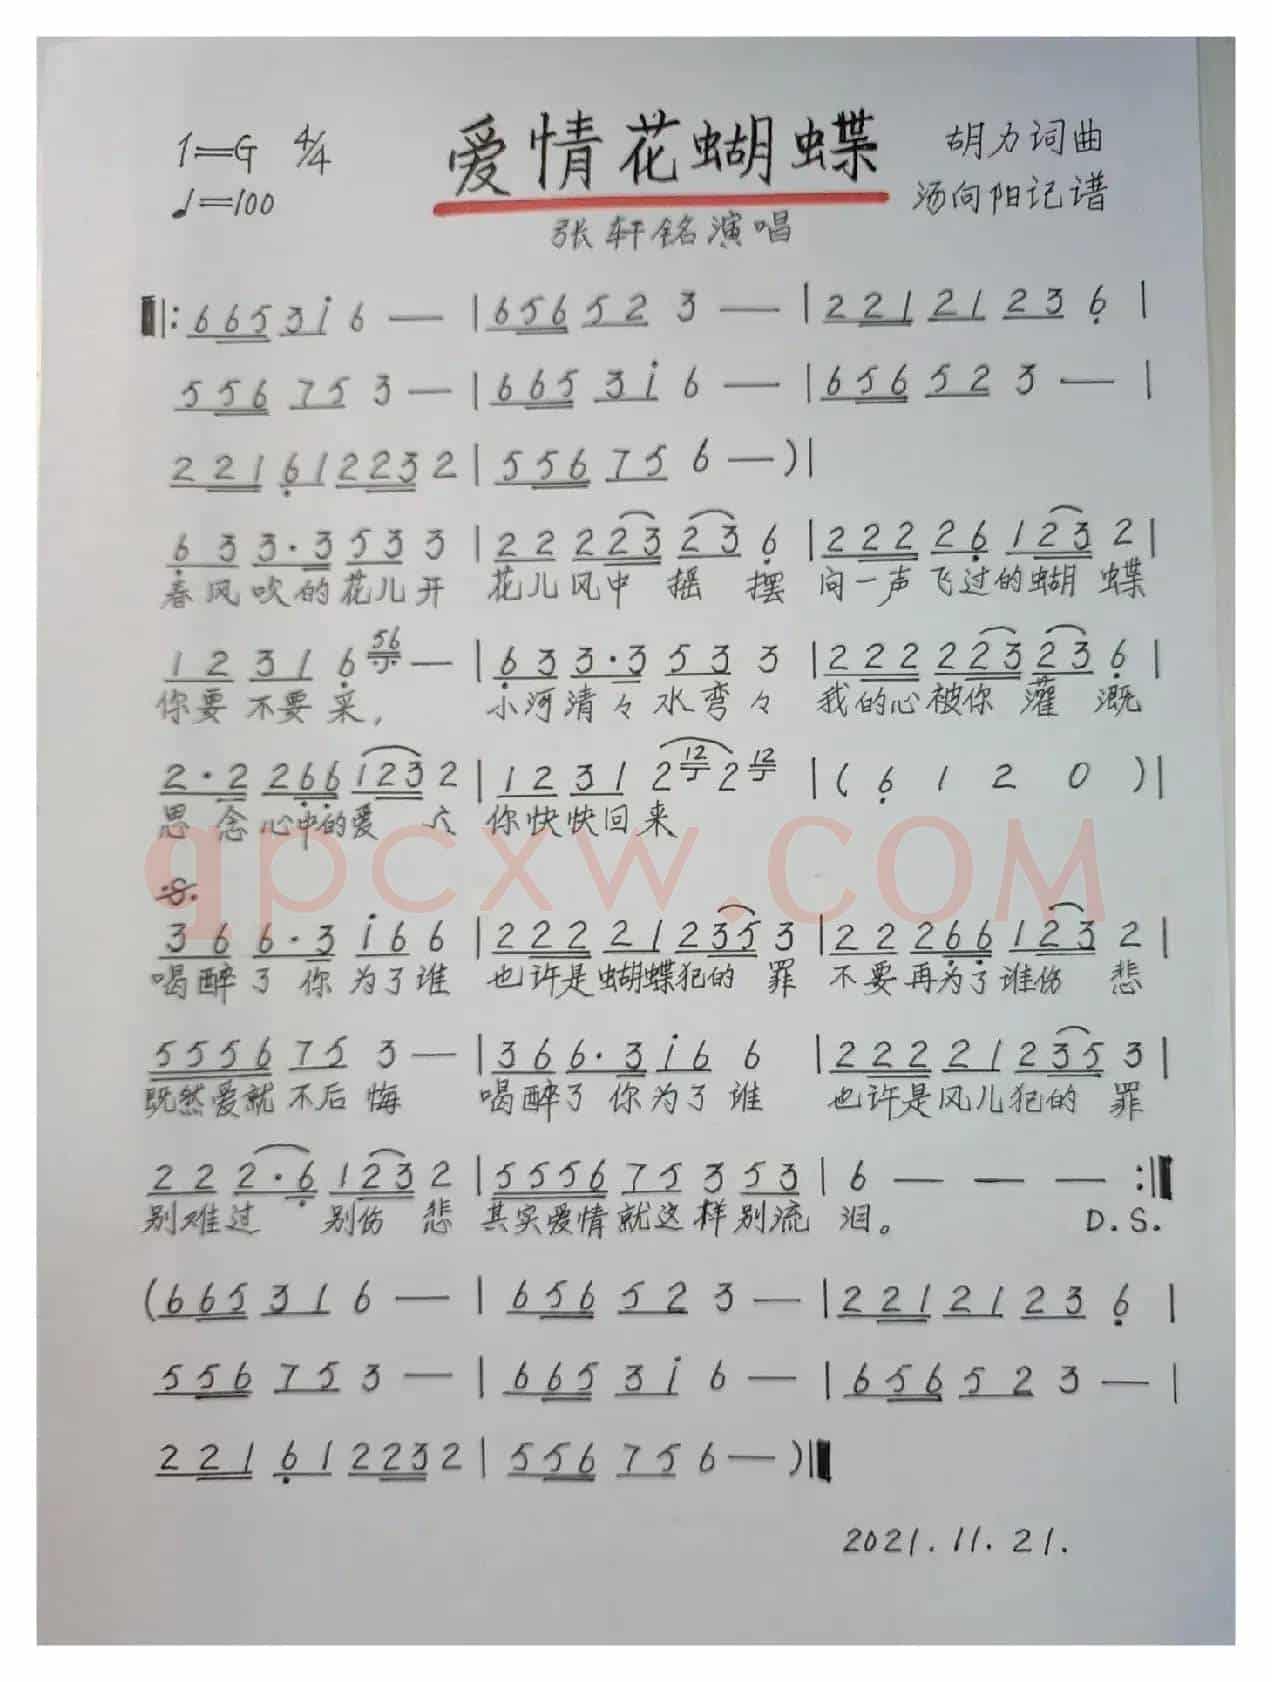 1=G 4/4 爱情花蝴蝶 胡力词曲
♩=100 汤向阳记谱
张轩铭演唱
‖: 6 6 5 3 i 6 — | 6 5 6 5 2 3 — | 2 2 1 2 1 2 3 6̣ |
5 5 6 7 5 3 — | 6 6 5 3 i 6 — | 6 5 6 5 2 3 — |
2 2 1 6̣ 1 2 2 3 2 | 5 5 6 7 5 6 — ) |
6̣ 3 3 · 3 5 3 3 | 2 2 2 2 3 2 3 6̣ | 2 2 2 2 6̣ 1 2 3 2 |
春风吹的花儿开 花儿风中摇摆 问一声飞过的蝴蝶
1 2 3 1 6̣ 56 — | 6̣ 3 3 · 3 5 3 3 | 2 2 2 2 2 3 2 3 6̣ |
你要不要采, 小河清々水弯々 我的心被你灌溉
2 · 2 2 6̣ 6̣ 1 2 3 2 | 1 2 3 1 2 12 2 12 | ( 6̣ 1 2 0 ) |
思念心中的爱 你快快回来
qpcxw.COM
3 6 6 · 3 i 6 6 | 2 2 2 2 1 2 3 5 3 | 2 2 2 6̣ 6̣ 1 2 3 2 |
喝醉了你为了谁 也许是蝴蝶犯的罪 不要再为了谁伤悲
5 5 5 6 7 5 3 — | 3 6 6 · 3 i 6 6 | 2 2 2 2 1 2 3 5 3 |
既然爱就不后悔 喝醉了你为了谁 也许是风儿犯的罪
2 2 2 · 6̣ 1 2 3 2 | 5 5 5 6 7 5 3 5 3 | 6 — — — :‖
别难过 别伤悲 其实爱情就这样别流泪。 D.S.
( 6 6 5 3 1 6 — | 6 5 6 5 2 3 — | 2 2 1 2 1 2 3 6̣ |
5 5 6 7 5 3 — | 6 6 5 3 i 6 — | 6 5 6 5 2 3 — |
2 2 1 6̣ 1 2 2 3 2 | 5 5 6 7 5 6 — ) ‖
2021.11.21.